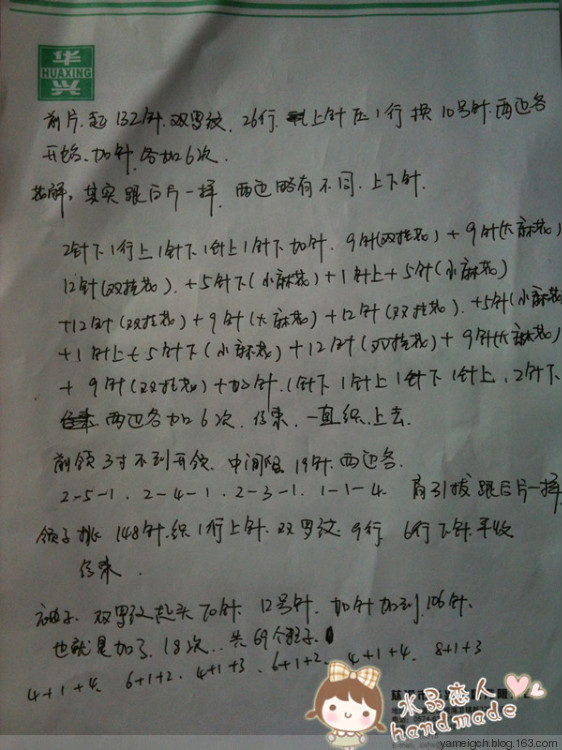 华
HUAXING
兴
前片.起132针.双罗纹.26行.上针压1行换10号针.两边各
开始.加针.各加6次.
其实跟后片一样.两边略有不同.上下针.
2针下1行上1针下1针上1针下加针.9针(双桂花)+9针(大麻花)
12针(双桂花).+5针下(小麻花)+1针上+5针(小麻花)
+12针(双桂花)+9针(大麻花)+12针(双桂花).+5针(小麻花
+1针上+5针下(小麻花)+12针(双桂花)+9针(大麻花)
+9针(双桂花)+加针.(1针下1针上1针下1针上.2针下
两边各加6次.结束.一直织上去.
前领3寸不到开领.中间 19针.西边各.
2-5-1.2-4-1.2-3-1.1-1-4.肩引拔跟后片一样
领子挑148针.织1行上针.双罗纹9行 6行下针.平收
结束.
袖子.双罗纹起头70针.12号针.加针加到106针.
也就是加了18次..共69个
4+1+4. 6+1+2. 4+1+3. 6+1+2. 4+1+4. 8+1+3
水晶恋人
handmade
yameigch.blog.163.com